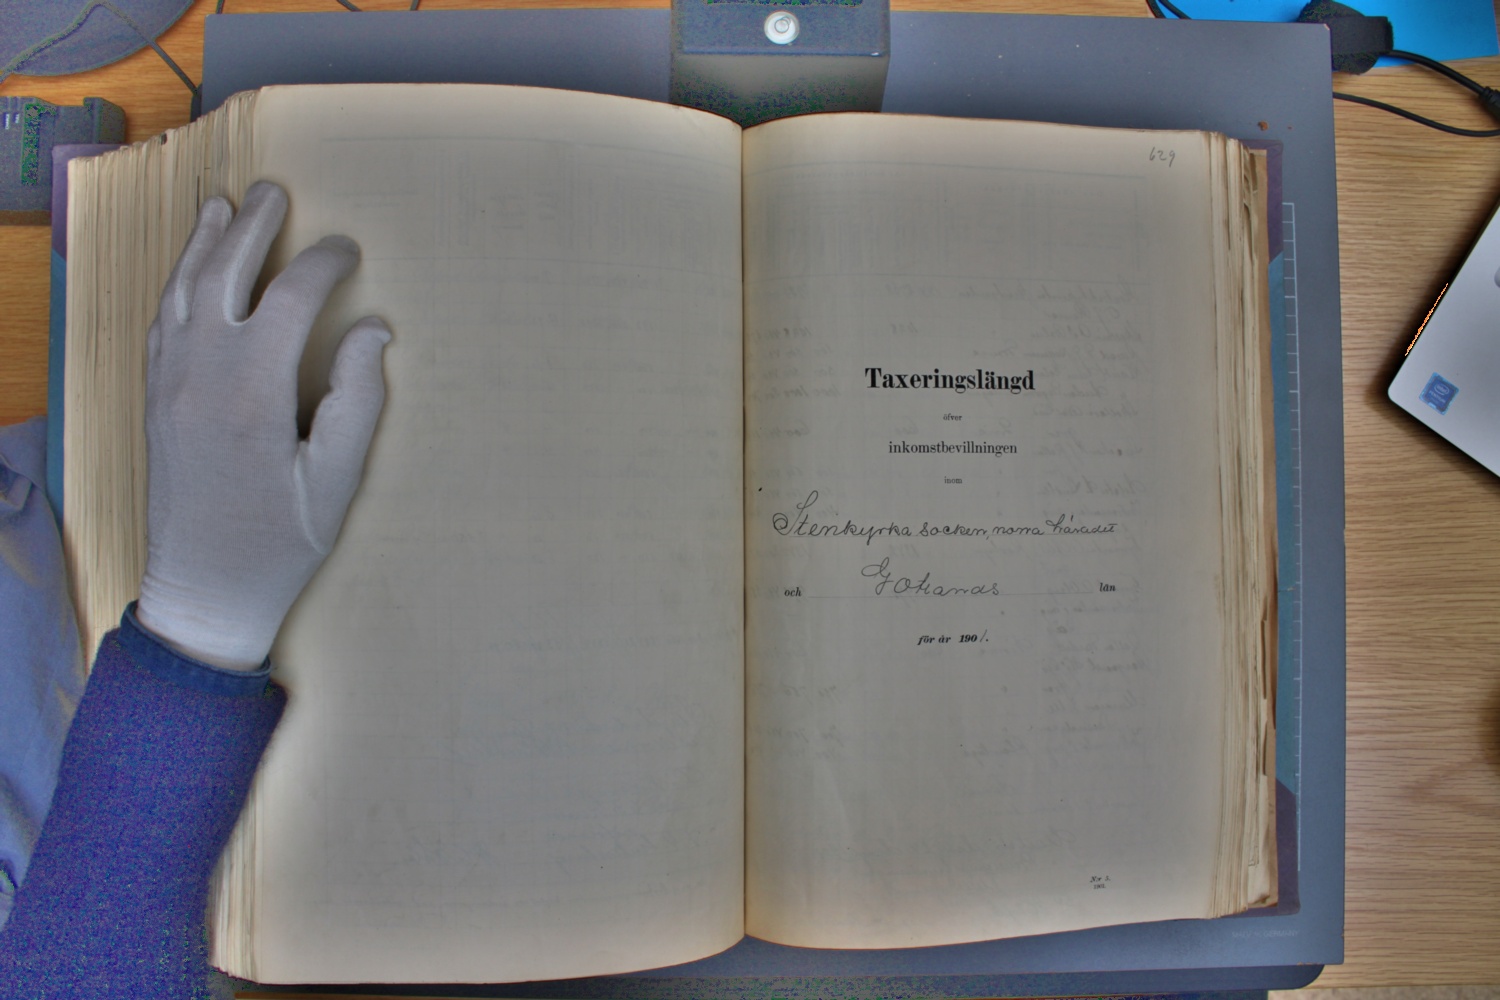 629
Taxeringslängd
öfver
inkomstbevillningen
inom
Stenkyrka socken, norra häradet
och Gotlands län
för år 190 1.
N:r 5.
1901.